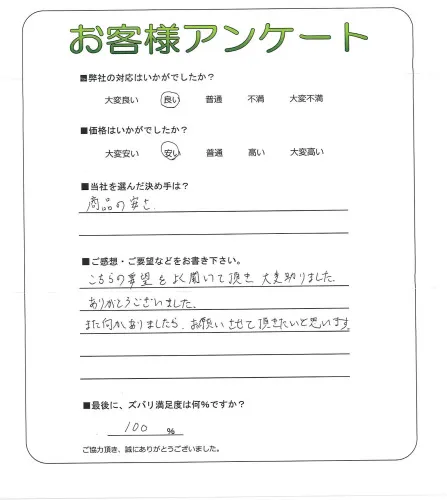 お客様アンケート
■弊社の対応はいかがでしたか?
大変良い 良い 普通 不満 大変不満
■価格はいかがでしたか?
大変安い 安い 普通 高い 大変高い
■当社を選んだ決め手は?
商品の安さ.
■ご感想・ご要望などをお書き下さい。
こちらの要望をよく聞いて頂き 大変助りました
ありがとうございました.
また何かありましたら、お願いさせて頂きたいと思います
■最後に、ズバリ満足度は何%ですか?
100 %
ご協力頂き、誠にありがとうございました。